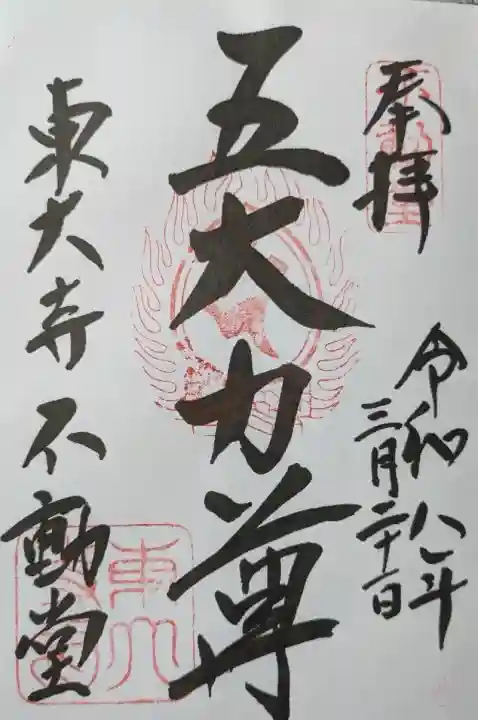 奉拝
令和八年
三月二十二日
五大力尊
東大寺 不動堂